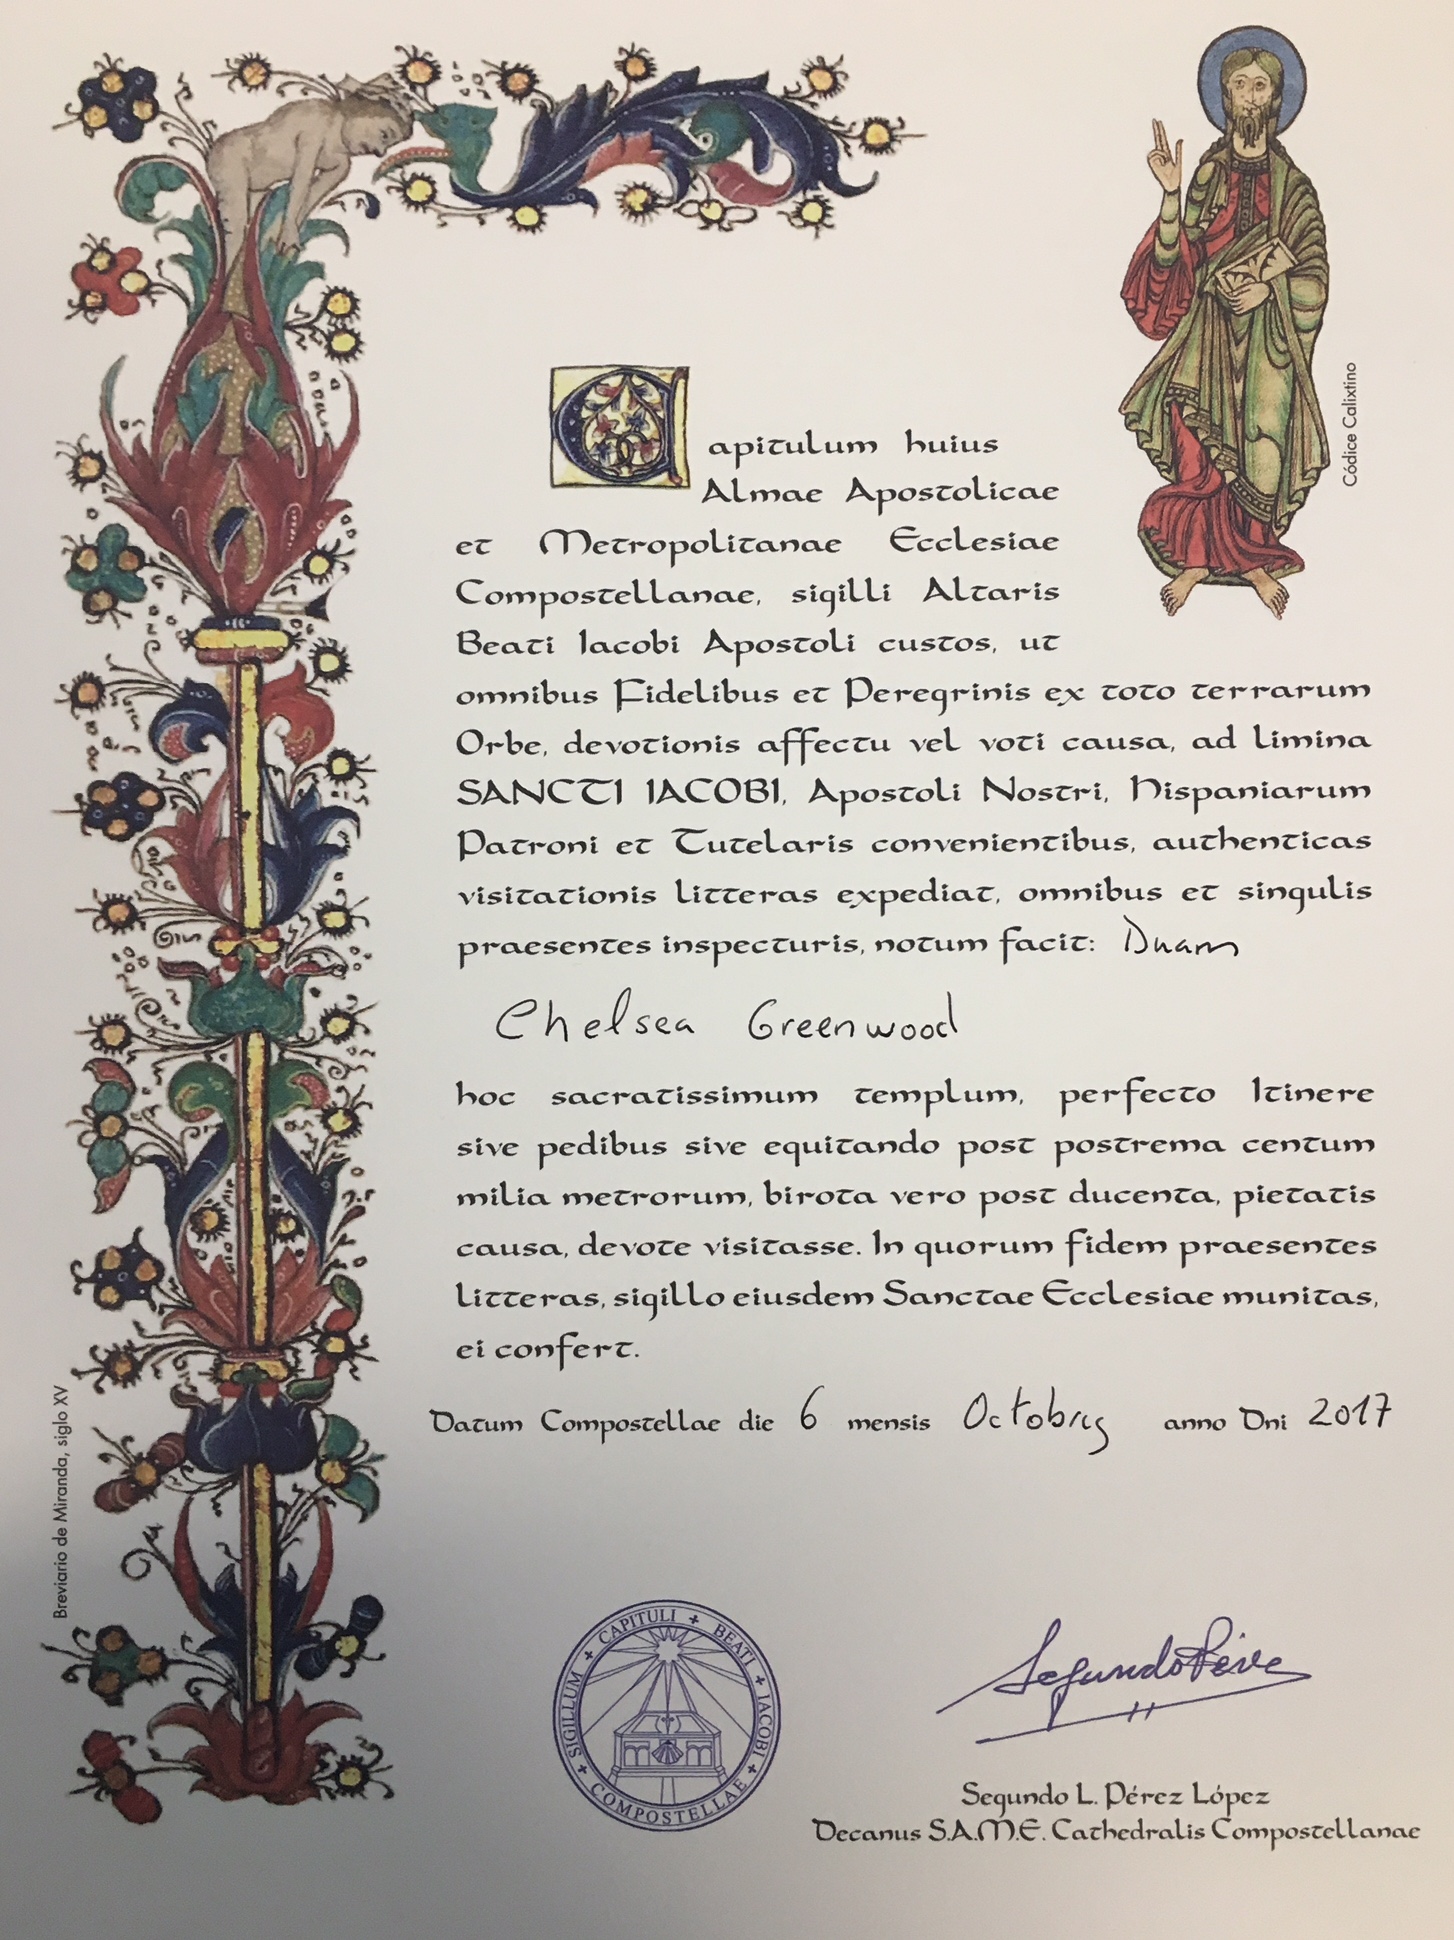 Capitulum huius
Almae Apostolicae
et Metropolitanae Ecclesiae
Compostellanae, sigilli Altaris
Beati Iacobi Apostoli custos, ut
omnibus Fidelibus et Peregrinis ex toto terrarum
Orbe, devotionis affectu vel voti causa, ad limina
SANCTI IACOBI, Apostoli Nostri, Hispaniarum
Patroni et Tutelaris convenientibus, authenticas
visitationis litteras expediat, omnibus et singulis
praesentes inspecturis, notum facit: Dnam
Chelsea Greenwood
hoc sacratissimum templum, perfecto Itinere
sive pedibus sive equitando post postrema centum
milia metrorum, birota vero post ducenta, pietatis
causa, devote visitasse. In quorum fidem praesentes
litteras, sigillo eiusdem Sanctae Ecclesiae munitas,
ei confert.
Datum Compostellae die 6 mensis Octobris anno Dni 2017
Códice Calixtino
Breviario de Miranda, siglo XV
SIGILLUM + CAPITULI + BEATI + IACOBI + COMPOSTELLAE +
Segundo Pérez
Segundo L. Pérez López
Decanus S.A.M.E. Cathedralis Compostellanae